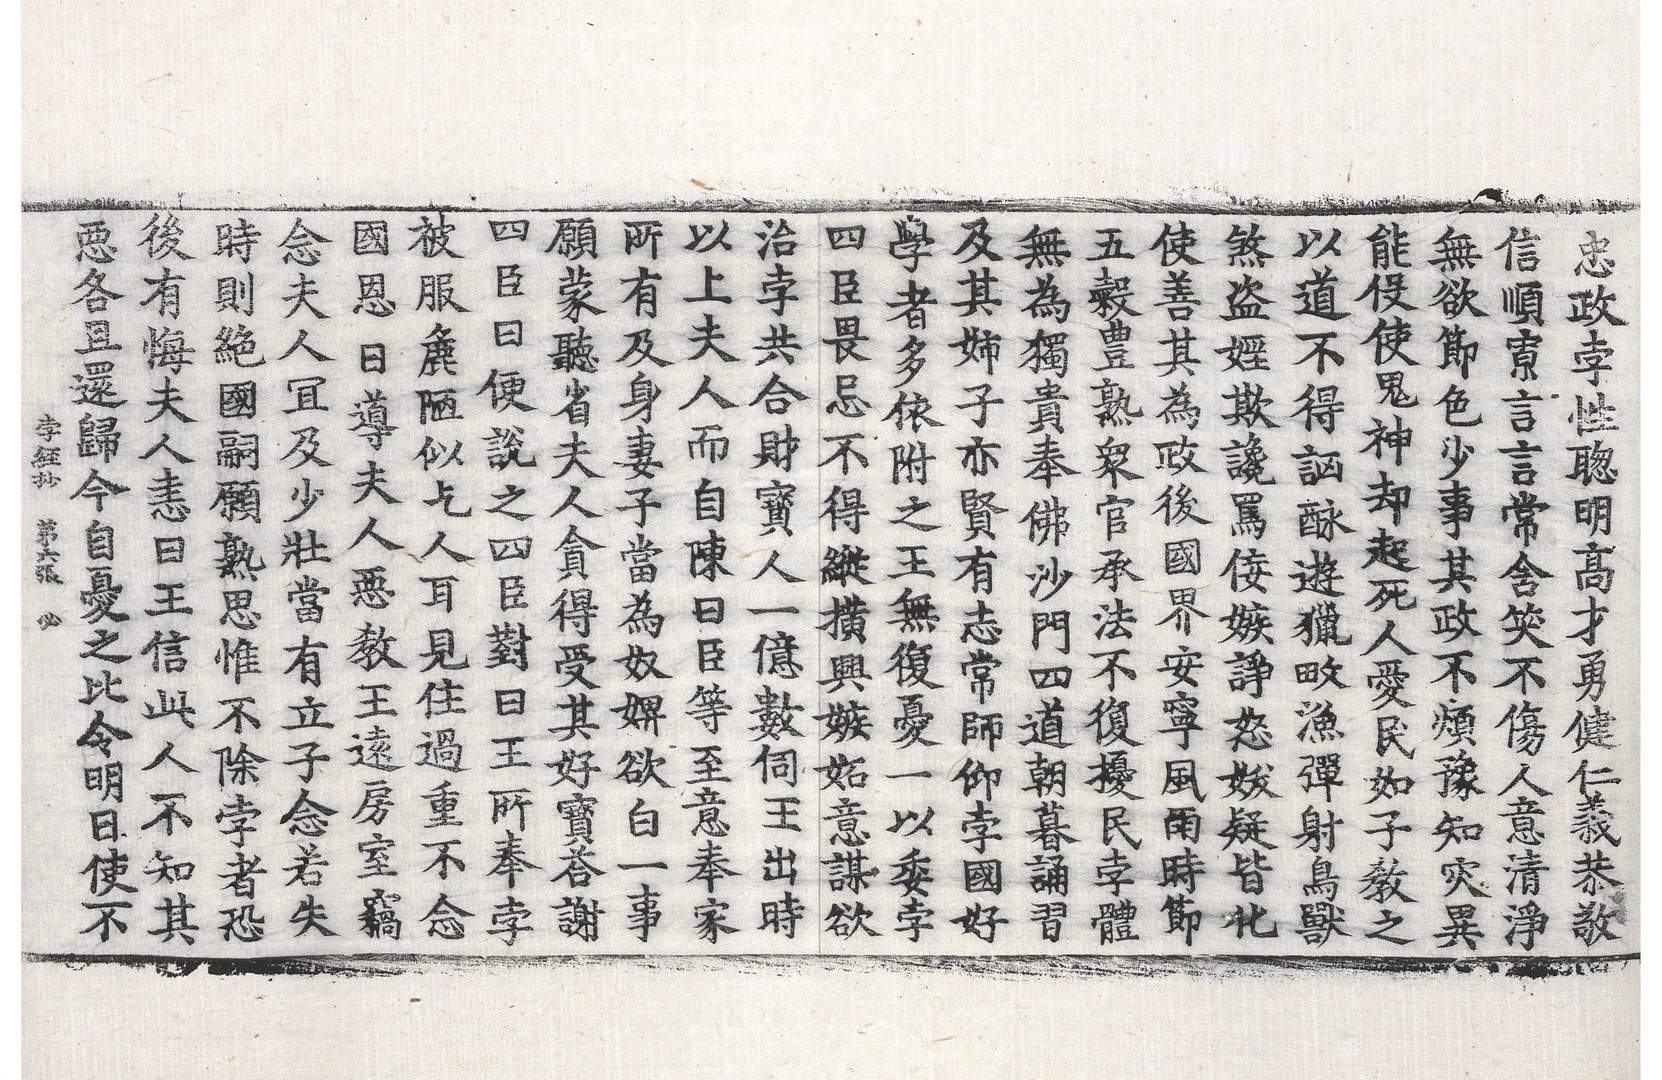 忠政孛性聦明高才勇健仁義恭敬
信順言言常含笑不傷人意清淨
無欲節色少事其政不煩豫知灾異
能伇使鬼神却起死人愛民如子教之
以道不得酗醊遊獵畋漁彈射鳥獸
煞盗婬欺讒罵侫嫉諍怒妭疑皆化
使善其為政後國界安寧風雨時節
五穀豊熟衆官承法不復擾民孛體
無為獨貴奉佛沙門四道朝暮誦習
及其姉子亦賢有志常師仰孛國好
學者多依附之王無復憂一以委孛
四臣畏忌不得縱橫興嫉妬意謀欲
治孛共合財寳人一億數伺王出時
以上夫人而自陳曰臣等至意奉家
所有及身妻子當為奴婢欲白一事
願蒙聽省夫人貪得受其好寳荅謝
四臣曰便說之四臣對曰王所奉孛
被服麁陋似乞人耳見住過重不念
國恩日導夫人惡教王遠房室竊
念夫人冝及少壯當有立子念若失
時則絶國嗣願熟思惟不除孛者恐
後有悔夫人恚曰王信此人不知其
惡各且還歸今自憂之比令明日使不
孛經抄 第六張 必